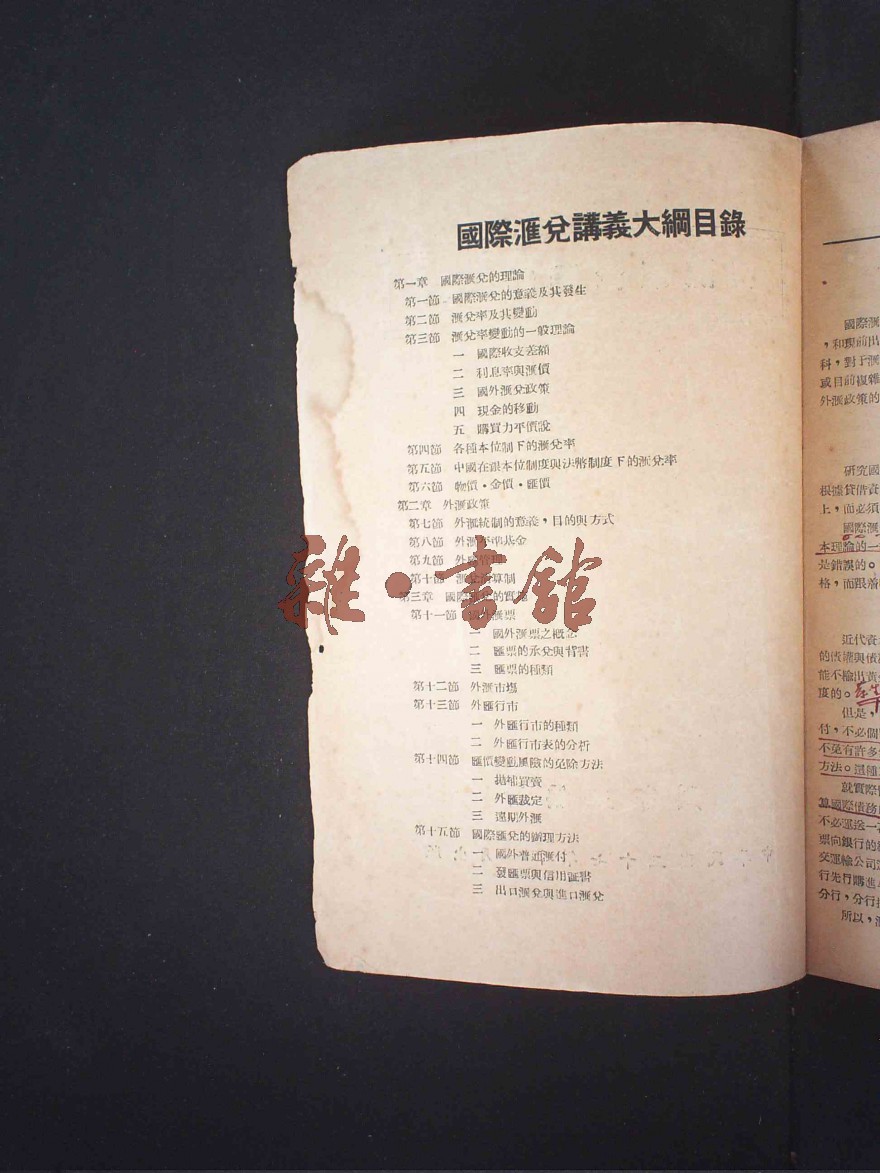 國際滙兌講義大綱目錄
第一章 國際滙兌的理論
第一節 國際滙兌的意義及其發生
第二節 滙兌率及其變動
第三節 滙兌率變動的一般理論
一 國際收支差額
二 利息率與滙價
三 國外滙兌政策
四 現金的移動
五 購買力平價說
第四節 各種本位制下的滙兌率
第五節 中國在銀本位制度與法幣制度下的滙兌率
第六節 物價・金價・匯價
第二章 外滙政策
第七節 外滙統制的意義，目的與方式
第八節 外滙平準基金
第九節 外滙管理
第十節 滙兌清算制
第三章 國際滙兌的實務
第十一節 國外滙票
一 國外滙票之概念
二 匯票的承兌與背書
三 匯票的種類
第十二節 外滙市塲
第十三節 外匯行市
一 外匯行市的種類
二 外匯行市表的分析
第十四節 匯價變動風險的免除方法
一 拋補買賣
二 外匯裁定
三 遠期外滙
第十五節 國際匯兌的辦理方法
一 國外普通滙付
二 發匯票與信用証書
三 出口滙兌與進口滙兌
雜・書館
國際滙
，和現前出
科，對于滙
或目前複雜
外滙政策的
研究國
根據貸借責
上，而必須
國際滙
本理論的一
是錯誤的。
格，而跟着
近代資
的債權與債
能不輸出黃
度的。
但是，
付，不必個
不免有許多
方法。這種
就實際
算國際債務
不必運送一
票向銀行的
交運輸公司
行先行購進
分行，分行
所以，滙